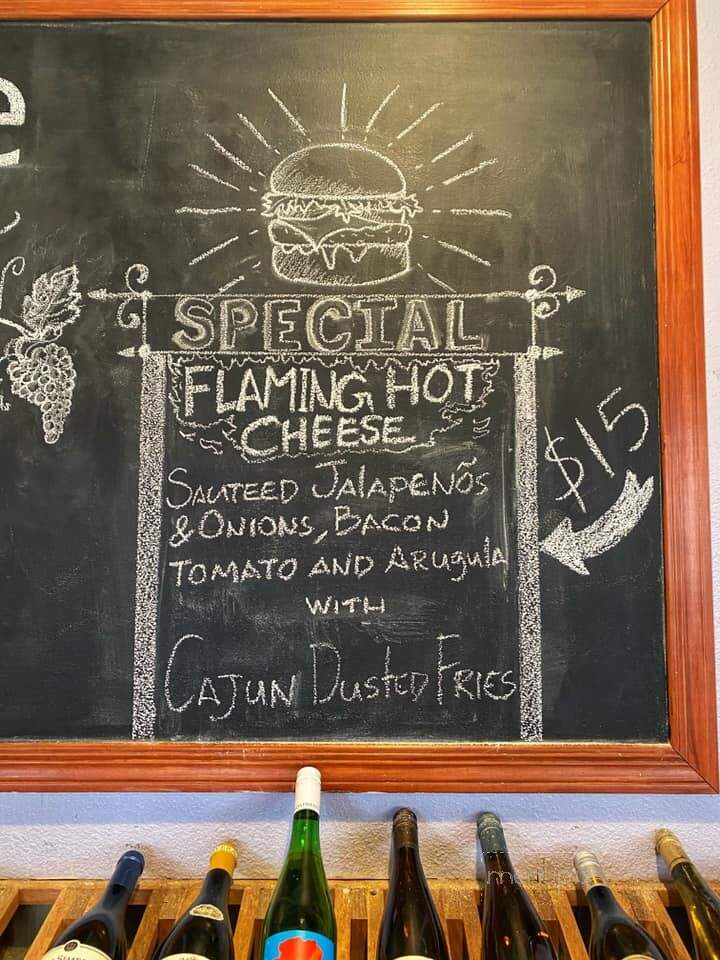 e
SPECIAL
FLAMING HOT
CHEESE
SAUTEED JALAPEÑOS
& ONIONS, BACON
TOMATO AND ARUGULA
WITH
CAJUN DUSTED FRIES
$15